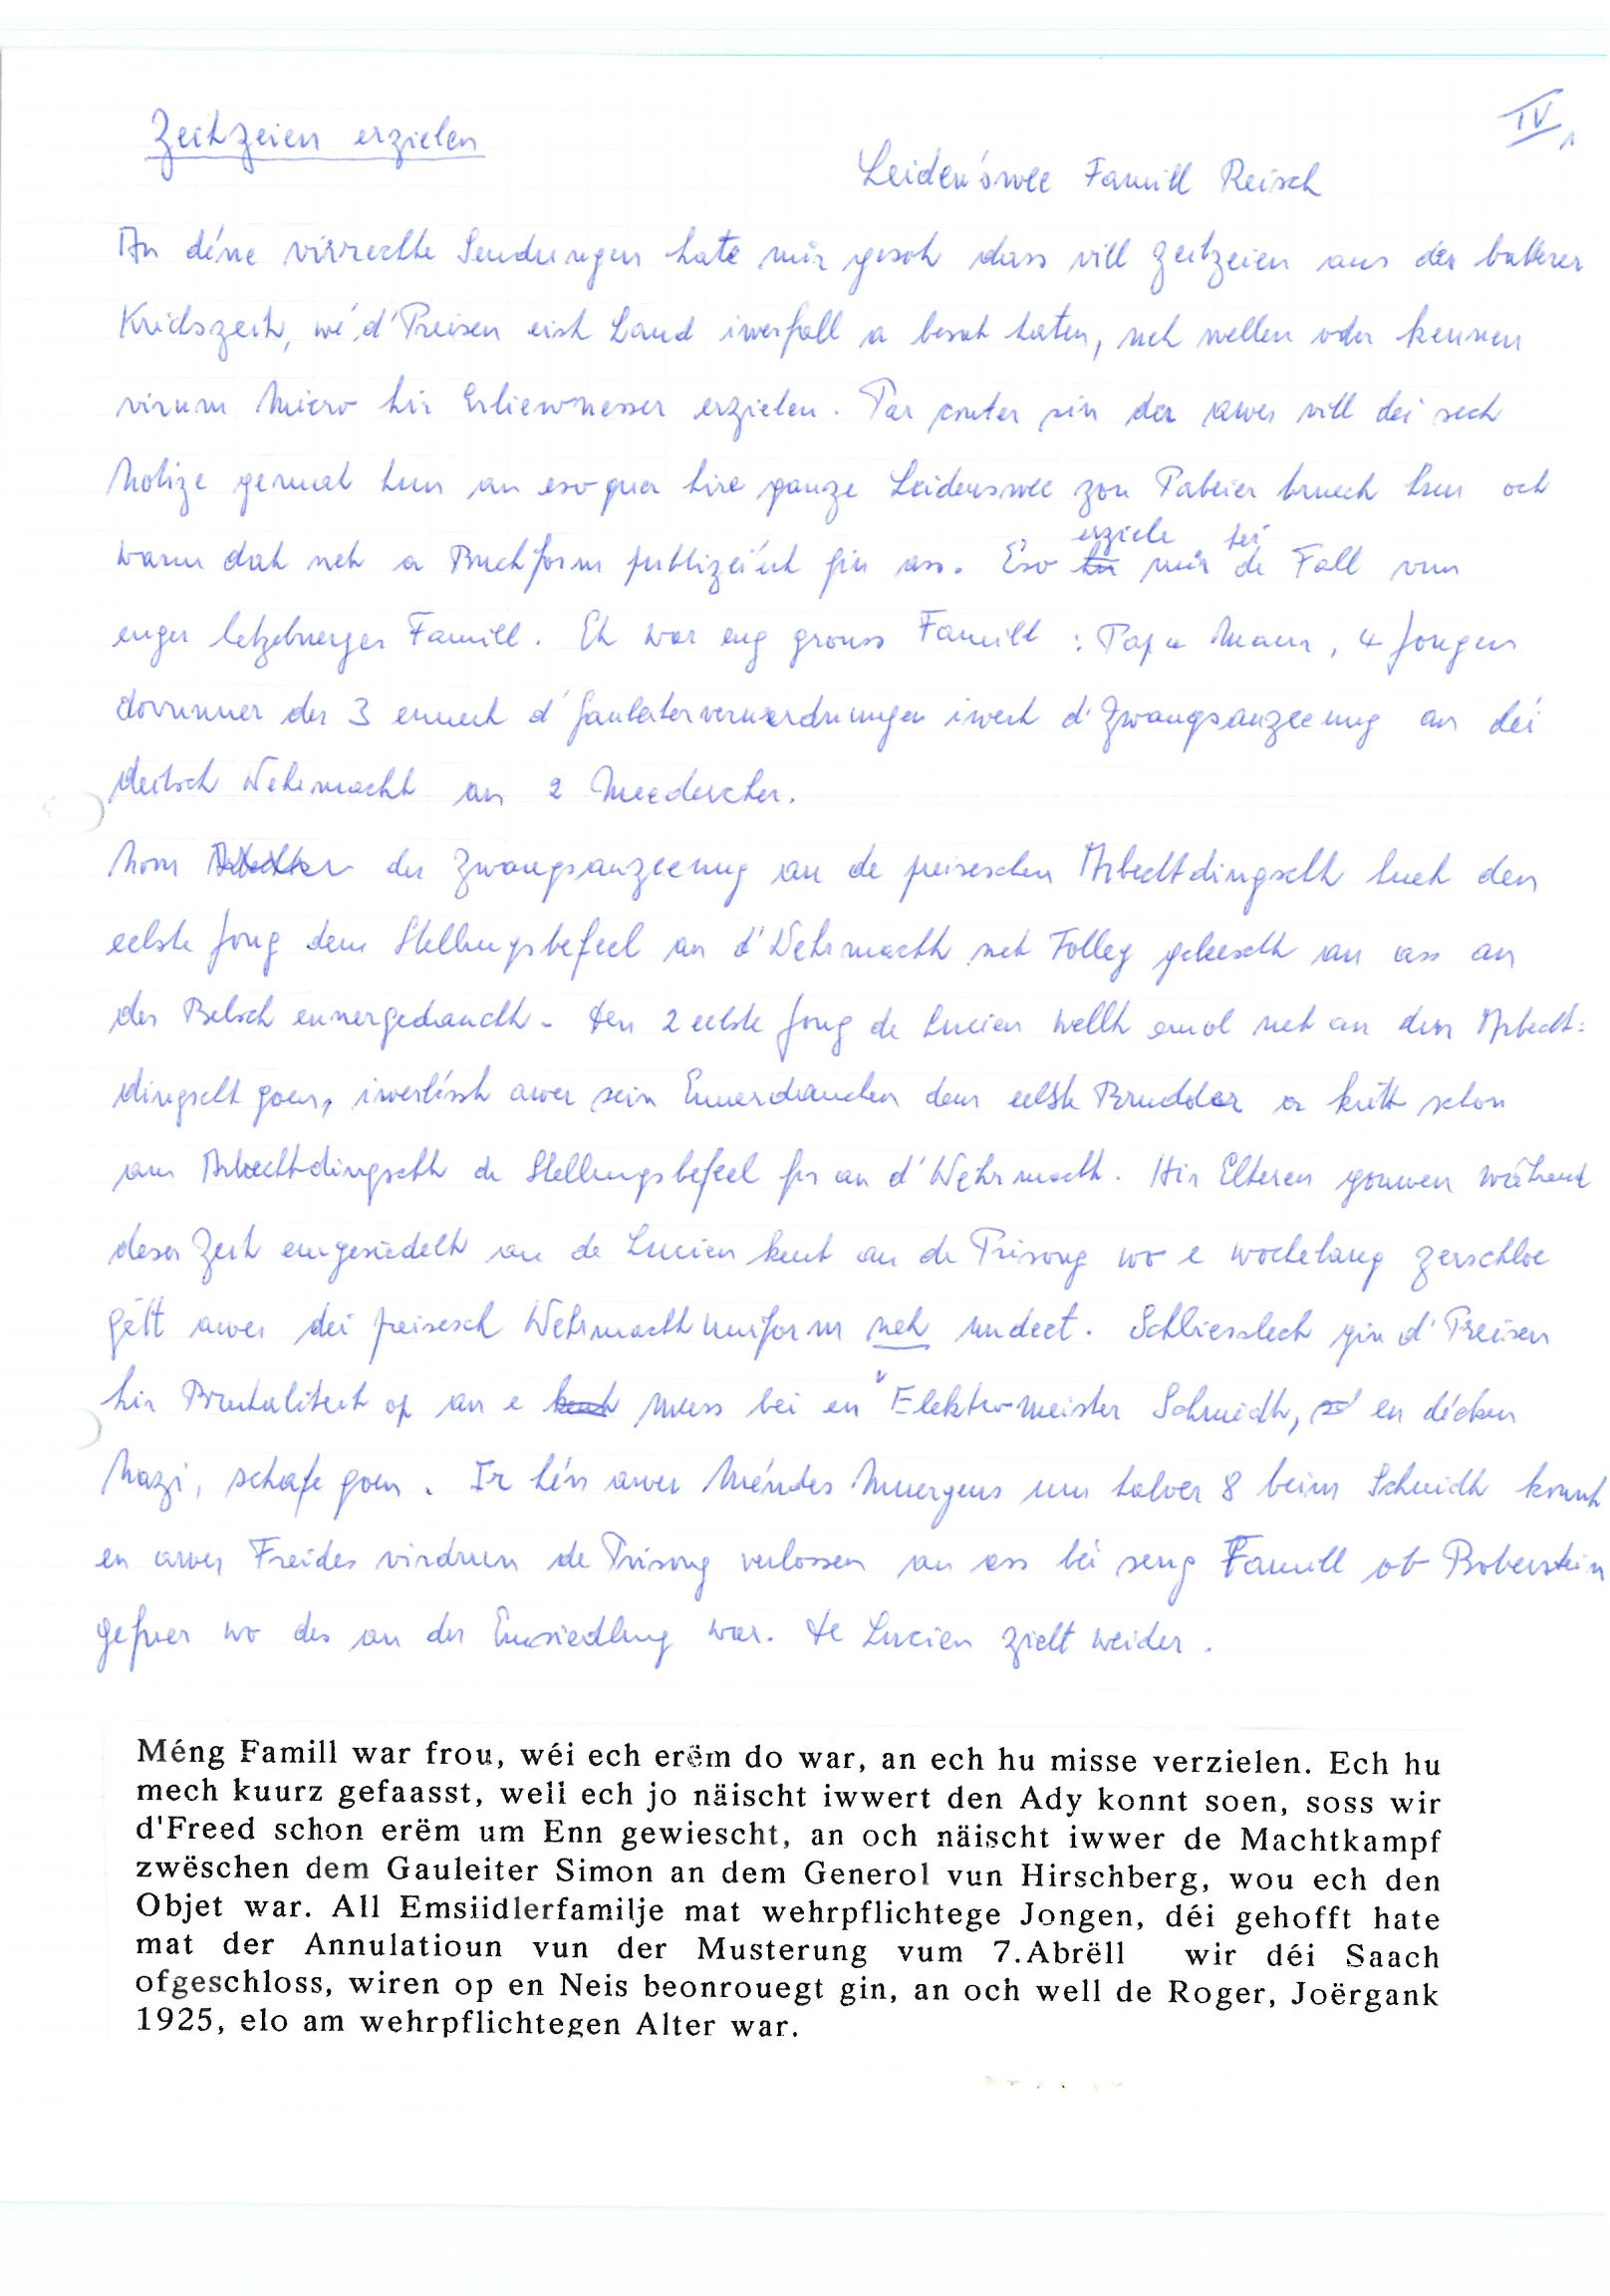 Zeitzeien erzielen
IV, 1
Leidenswee Famill Reisch
An déne virrechte Sendungen hate mir gesot dass vill Zeitzeien aus der batterer
Kridszeit, wé d'Preisen eist Land iwerfall a besat haten, net wellen oder kennen
virum Micro hir Erliewnesser erzielen. Par conter sin der awer vill dei sech
Notize gemat hun an esoguer hire ganze Leidenswee zou Pabeier bruecht hun och
wann dat net a Buchform publizéiert gin ass. Eso erziele mir hei de Fall vun
enger letzebuerger Famill. Et war eng grouss Famill : Papa Mam, 4 Jongen
dorunner der 3 ennert d'Gauleiterveruerdnungen iwert d'Zwangsanzeeung an déi
deitsch Wehrmacht an 2 Meedercher.
Nom der Zwangsanzeeung an de preiseschen Arbechtdingscht huet den
eelste Jong dem Stellungsbefeel an d'Wehrmacht net Folleg geleescht an ass an
der Belsch ennergedaucht. Den 2 eelste Jong de Lucien wellt emol net an den Arbecht=
dingscht goen, iwerlésst awer sein Ennerdauchen dem eelste Brudder a kritt schon
am Arbechtdingscht de Stellungsbefeel fir an d'Wehrmacht. Hir Elteren gouwen während
deser Zeit emgesiedelt an de Lucien kennt an de Prisong wo e wochelang zerschloe
gëtt awer déi preisesch Wehrmachtuniform net undeet. Schliesslech gin d'Preisen
hir Brutaliteit op an e muss bei en Elektromeister Schmidt, en décken
Nazi, schafe goen. Ir hén awer Méindes Muergens um halver 8 beim Schmidt kennt
en awer Freides virdrun de Prisong verlossen an ass bei seng Famill ob Boberstein
gefuer wo des an der Emsiedlung war. De Lucien zielt weider.
Méng Famill war frou, wéi ech erëm do war, an ech hu misse verzielen. Ech hu
mech kuurz gefaasst, well ech jo näischt iwwert den Ady konnt soen, soss wir
d'Freed schon erëm um Enn gewiescht, an och näischt iwwer de Machtkampf
zwëschen dem Gauleiter Simon an dem Generol vun Hirschberg, wou ech den
Objet war. All Emsiidlerfamilje mat wehrpflichtege Jongen, déi gehofft hate
mat der Annulatioun vun der Musterung vum 7.Abrëll wir déi Saach
ofgeschloss, wiren op en Neis beonrouegt gin, an och well de Roger, Joërgank
1925, elo am wehrpflichtegen Alter war.